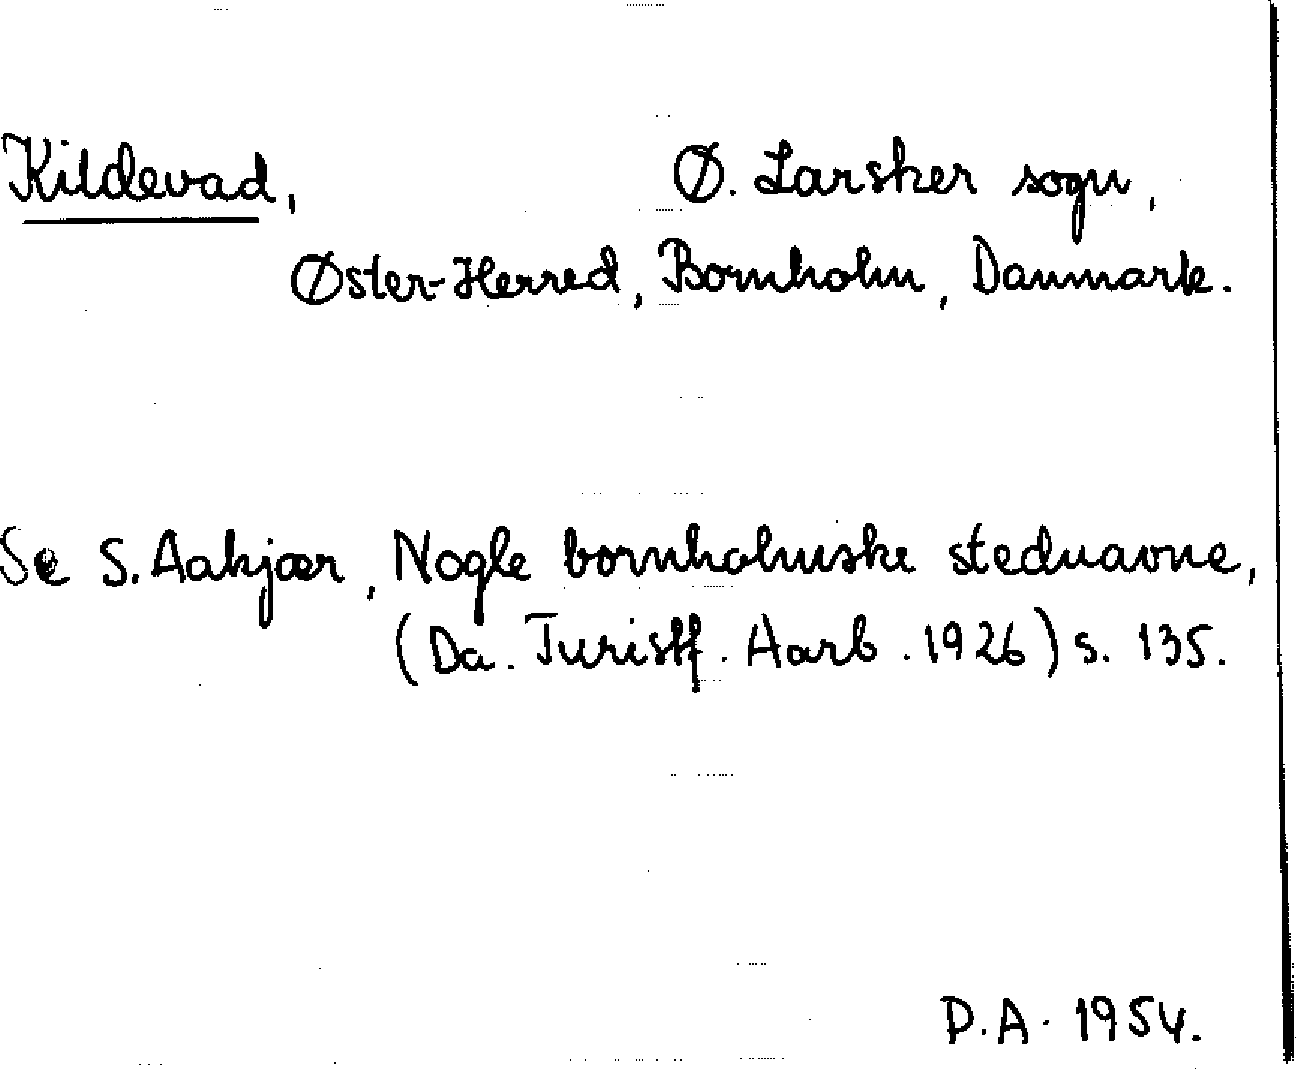 Kildevad, Ø. Larsker sogn,
Øster-Herred, Bornholm, Danmark.
Se S. Aakjær, Nogle bornholmske stednavne,
(Da. Turistf. Aarb. 1926) s. 135.
D.A. 1954.